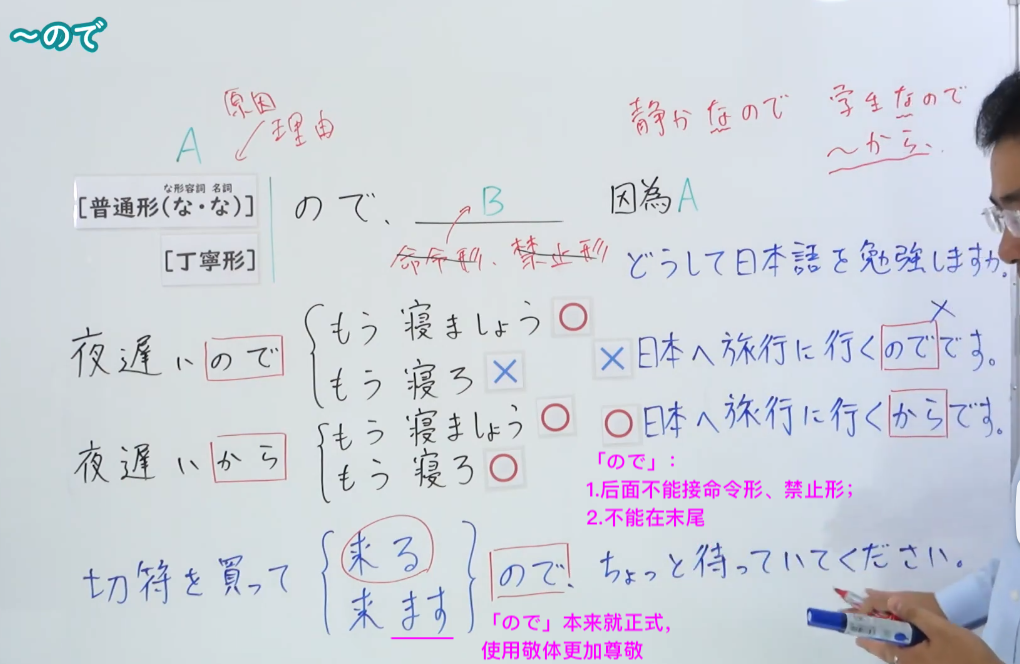 ～ので
原因
理由
静かなので 学生なので
～から、
A
な形容詞 名詞
[普通形(な・な)] ので、 B 因為A
[丁寧形]
命令形、禁止形
どうして日本語を勉強しますか。
夜遅いので もう寝ましょう ○
もう寝ろ ×
× 日本へ旅行に行くのでです。 ×
夜遅いから もう寝ましょう ○
もう寝ろ ○
○ 日本へ旅行に行くからです。
「ので」:
1.后面不能接命令形、禁止形；
2.不能在末尾
切符を買って 来る ので、ちょっと待っていてください。
来ます
「ので」本来就正式，
使用敬体更加尊敬